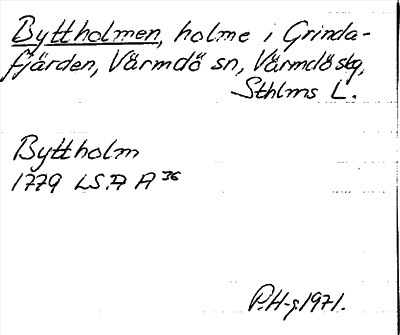 Byttholmen, holme i Grinda-
fjärden, Värmdö sn, Värmdö skg,
Sthlms L.
Byttholm
1779 LSA A 36
P.H-g 1971.